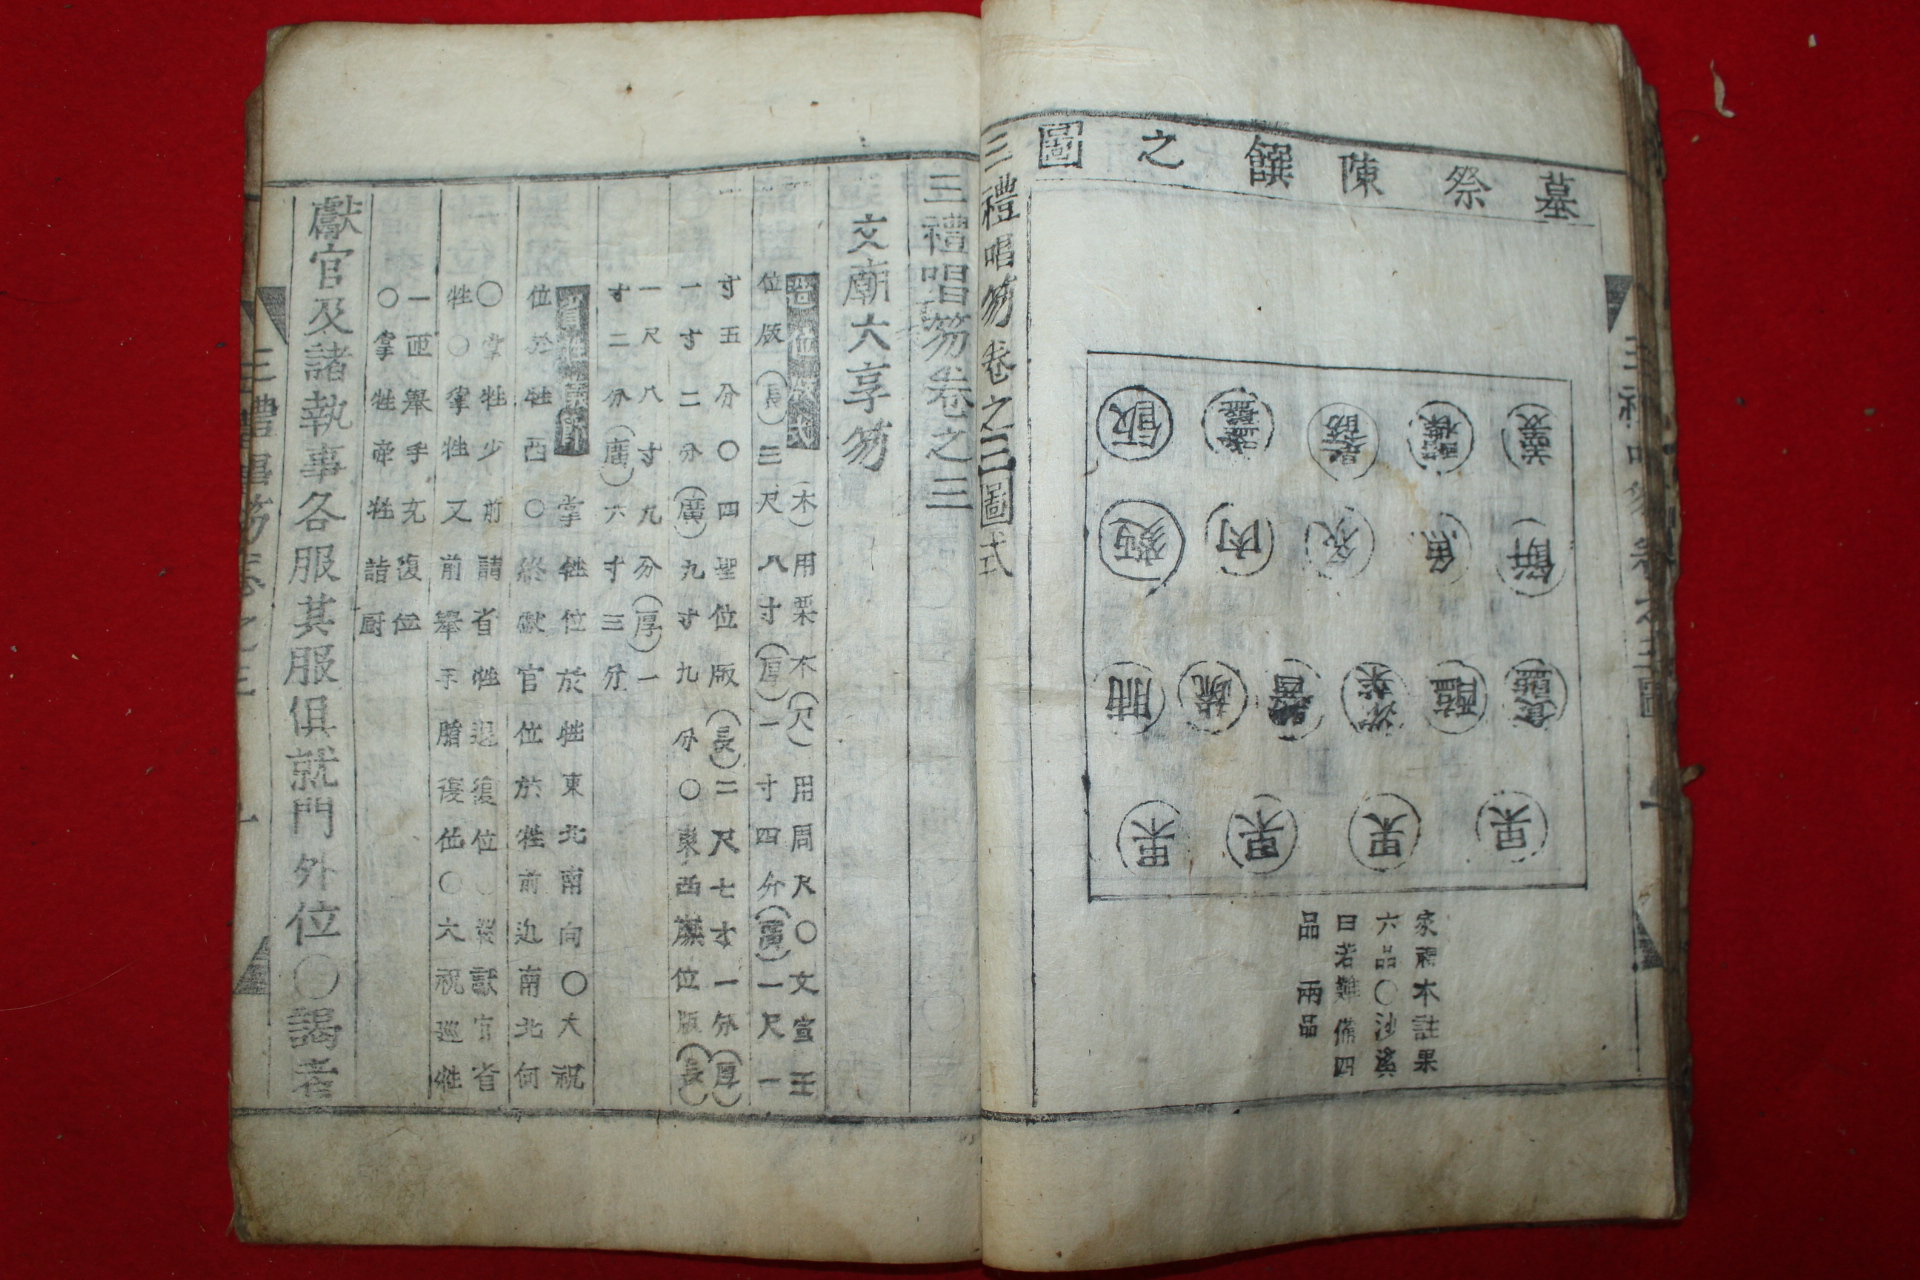 墓祭陳饌之圖
羹 醋楪 匙筯 盞盤 飯
餠 魚 炙 肉 麪
食醢 醢 沈菜 醬 蔬 脯
果 果 果 果
家禮本註果
六品〇沙溪
曰若難備四
品兩品
三禮唱笏卷之三圖式
三禮唱笏卷之三
文廟大享笏
位版式
(木)用栗木(尺)用周尺〇文宣王
位版(長)三尺八寸(厚)一寸四分(廣)一尺一
寸五分〇四聖位版(長)二尺七寸一分(厚)
一寸二分(廣)九寸九分〇東西廡位版(長)
一尺八寸九分(厚)一
寸二分(廣)六寸三分
省牲
掌牲位於牲東北南向〇大祝
位於牲西〇終獻官位於牲前近南北向
〇掌牲少前請省牲退復位〇終獻官省
牲〇掌牲又前擧手腯復位〇大祝巡牲
一匝擧手充復位
〇掌牲牽牲詣厨
獻官及諸執事各服其服俱就門外位〇謁者
三禮唱笏卷之三